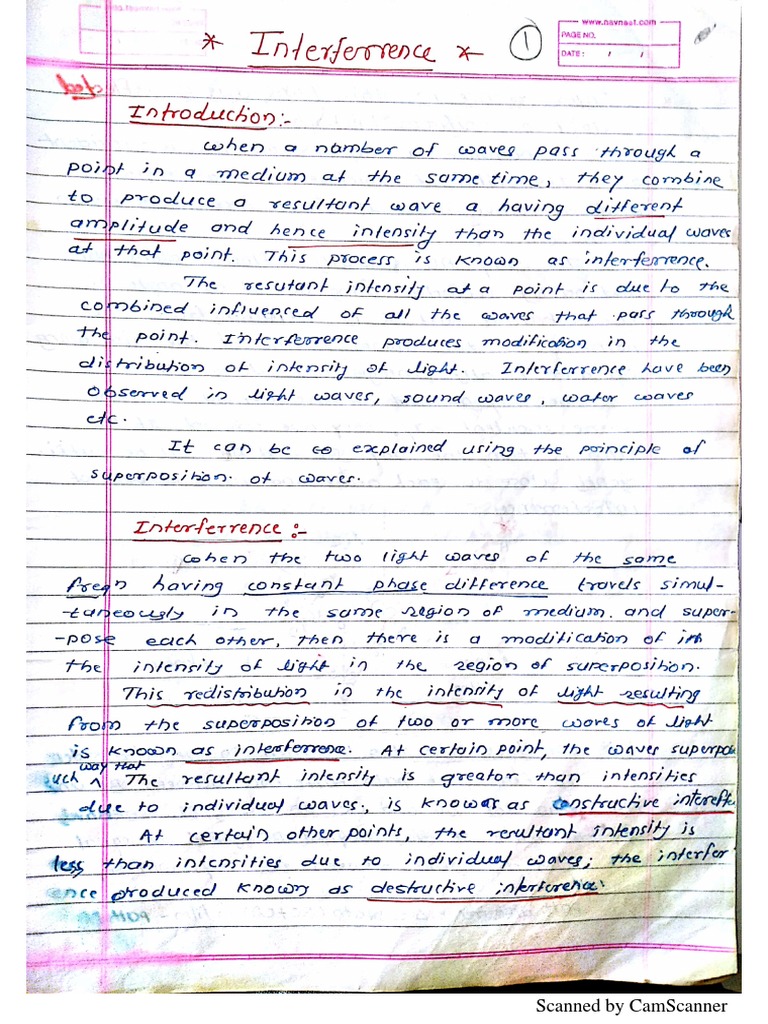 www.navneet.com
* Interferrence * 1
PAGE NO.
DATE: / /
Introduction:-
When a number of waves pass through a
point in a medium at the same time, they combine
to produce a resultant wave a having different
amplitude and hence intensity than the individual waves
at that point. This process is known as interferrence.
The resutant intensity at a point is due to the
combined influenced of all the waves that pass through
the point. Interferrence produces modification in the
distribution of intensity of light. Interferrence have been
observed in light waves, sound waves, water waves
etc.
It can be explained using the principle of
superposition of waves.
Interferrence :-
When the two light waves of the same
freqn having constant phase difference travels simul-
-taneously in the same region of medium and super-
-pose each other, then there is a modification of in
the intensity of light in the region of superposition.
This redistribution in the intensity of light resulting
from the superposition of two or more waves of light
is known as interferrence. At certain point, the waves superpo
way that
such ^ The resultant intensity is greator than intensities
due to individual waves, is known as constructive interfe
At certain other points, the resultant intensity is
less than intensities due to individual waves; the interfer
ence produced known as destructive interference.
Scanned by CamScanner